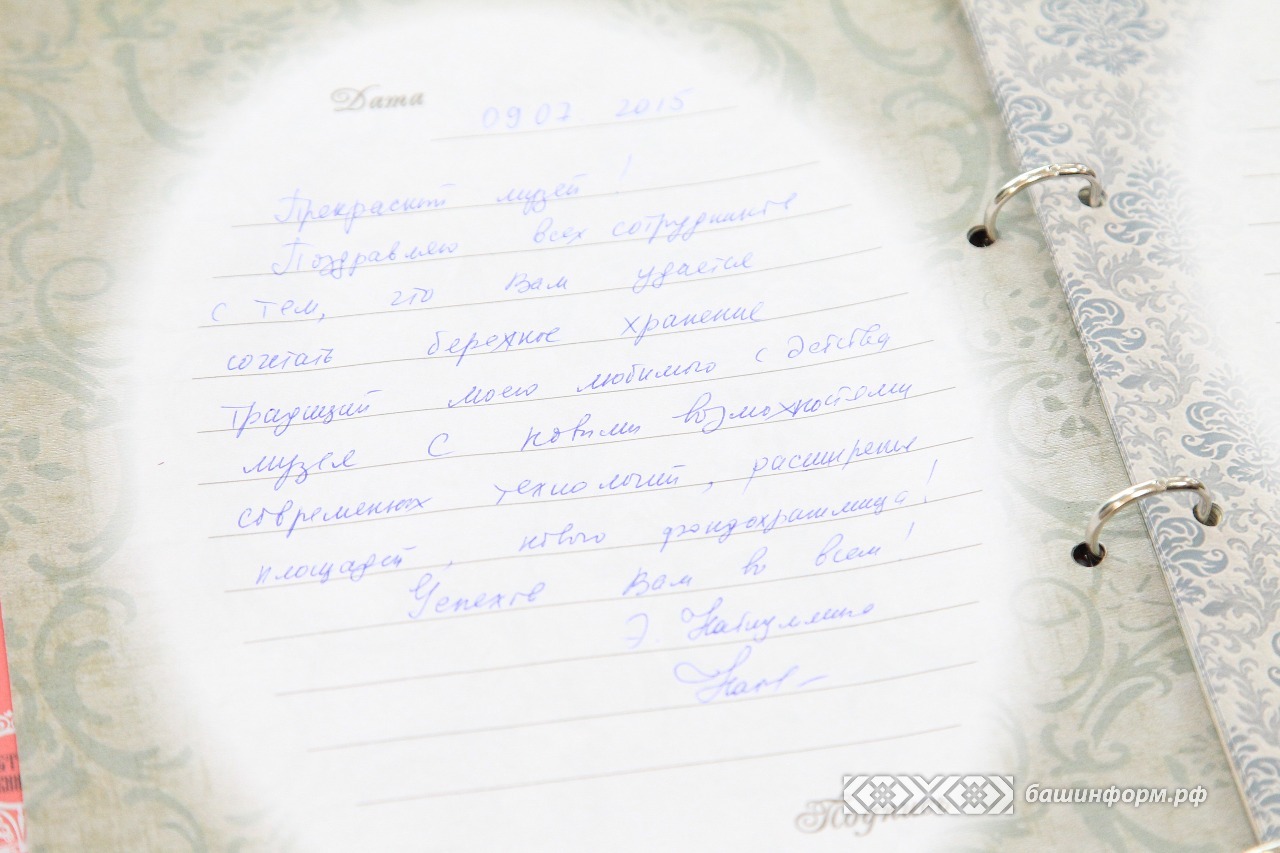 Дата
09 07 2015
Прекрасный музей!
Поздравляю всех сотрудников
с тем, что Вам удается
сочетать бережное хранение
традиций моего любимого с детства
музея с новыми возможностями
современных технологий, расширения
площадей, нового фондохранилища!
Успехов Вам во всем!
Э. Набиуллина
башинформ.рф